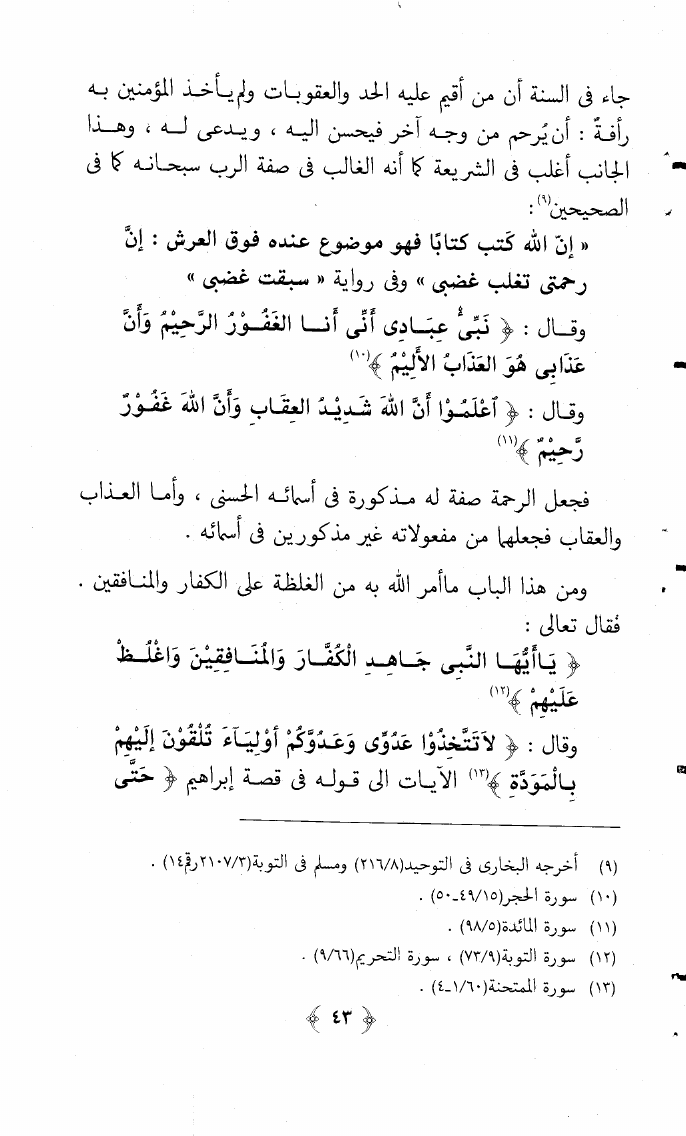 جاء فى السنة أن من أقيم عليه الحد والعقوبات ولم يأخذ المؤمنين به
رأفةٌ : أن يُرحم من وجه آخر فيحسن اليه ، ويدعى له ، وهذا
الجانب أغلب فى الشريعة كما أنه الغالب فى صفة الرب سبحانه كما فى
الصحيحين(٩):
« إنّ الله كَتب كتابًا فهو موضوع عنده فوق العرش : إنَّ
رحمتى تغلب غضبى » وفى رواية « سبقت غضبى »
وقال : ﴿ نَبِّئُ عِبَادِى أَنِّى أَنا الغَفُوْرُ الرَّحِيْمُ وَأَنَّ
عَذَابِى هُوَ العَذَابُ الأَلِيْمُ ﴾(١٠)
وقال : ﴿ ٱعْلَمُوْا أَنَّ اللهَ شَدِيْدُ العِقَابِ وَأَنَّ اللهَ غَفُوْرٌ
رَّحِيْمٌ ﴾(١١)
فجعل الرحمة صفة له مذكورة فى أسمائه الحسنى ، وأما العذاب
والعقاب فجعلها من مفعولاته غير مذكورين فى أسمائه .
ومن هذا الباب ماأمر الله به من الغلظة على الكفار والمنافقين .
فقال تعالى :
﴿ يَاأَيُّهَا النَّبِى جَاهِدِ الْكُفَّارَ وَالْمُنَافِقِيْنَ وَاغْلُظْ
عَلَيْهِمْ ﴾(١٢)
وقال : ﴿ لاَتَتَّخِذُوْا عَدُوِّى وَعَدُوَّكُمْ أَوْلِيَآءَ تُلْقُوْنَ إِلَيْهِمْ
بِالْمَوَدَّةِ ﴾(١٣) الآيات الى قوله فى قصة إبراهيم ﴿ حَتَّى
(٩) أخرجه البخارى فى التوحيد(٢١٦/٨) ومسلم فى التوبة(٢١٠٧/٣رقم١٤) .
(١٠) سورة الحجر(٤٩/١٥ـ٥٠) .
(١١) سورة المائدة(٩٨/٥) .
(١٢) سورة التوبة(٧٣/٩) ، سورة التحريم(٩/٦٦) .
(١٣) سورة الممتحنة(١/٦٠ـ٤) .
﴿ ٤٣ ﴾